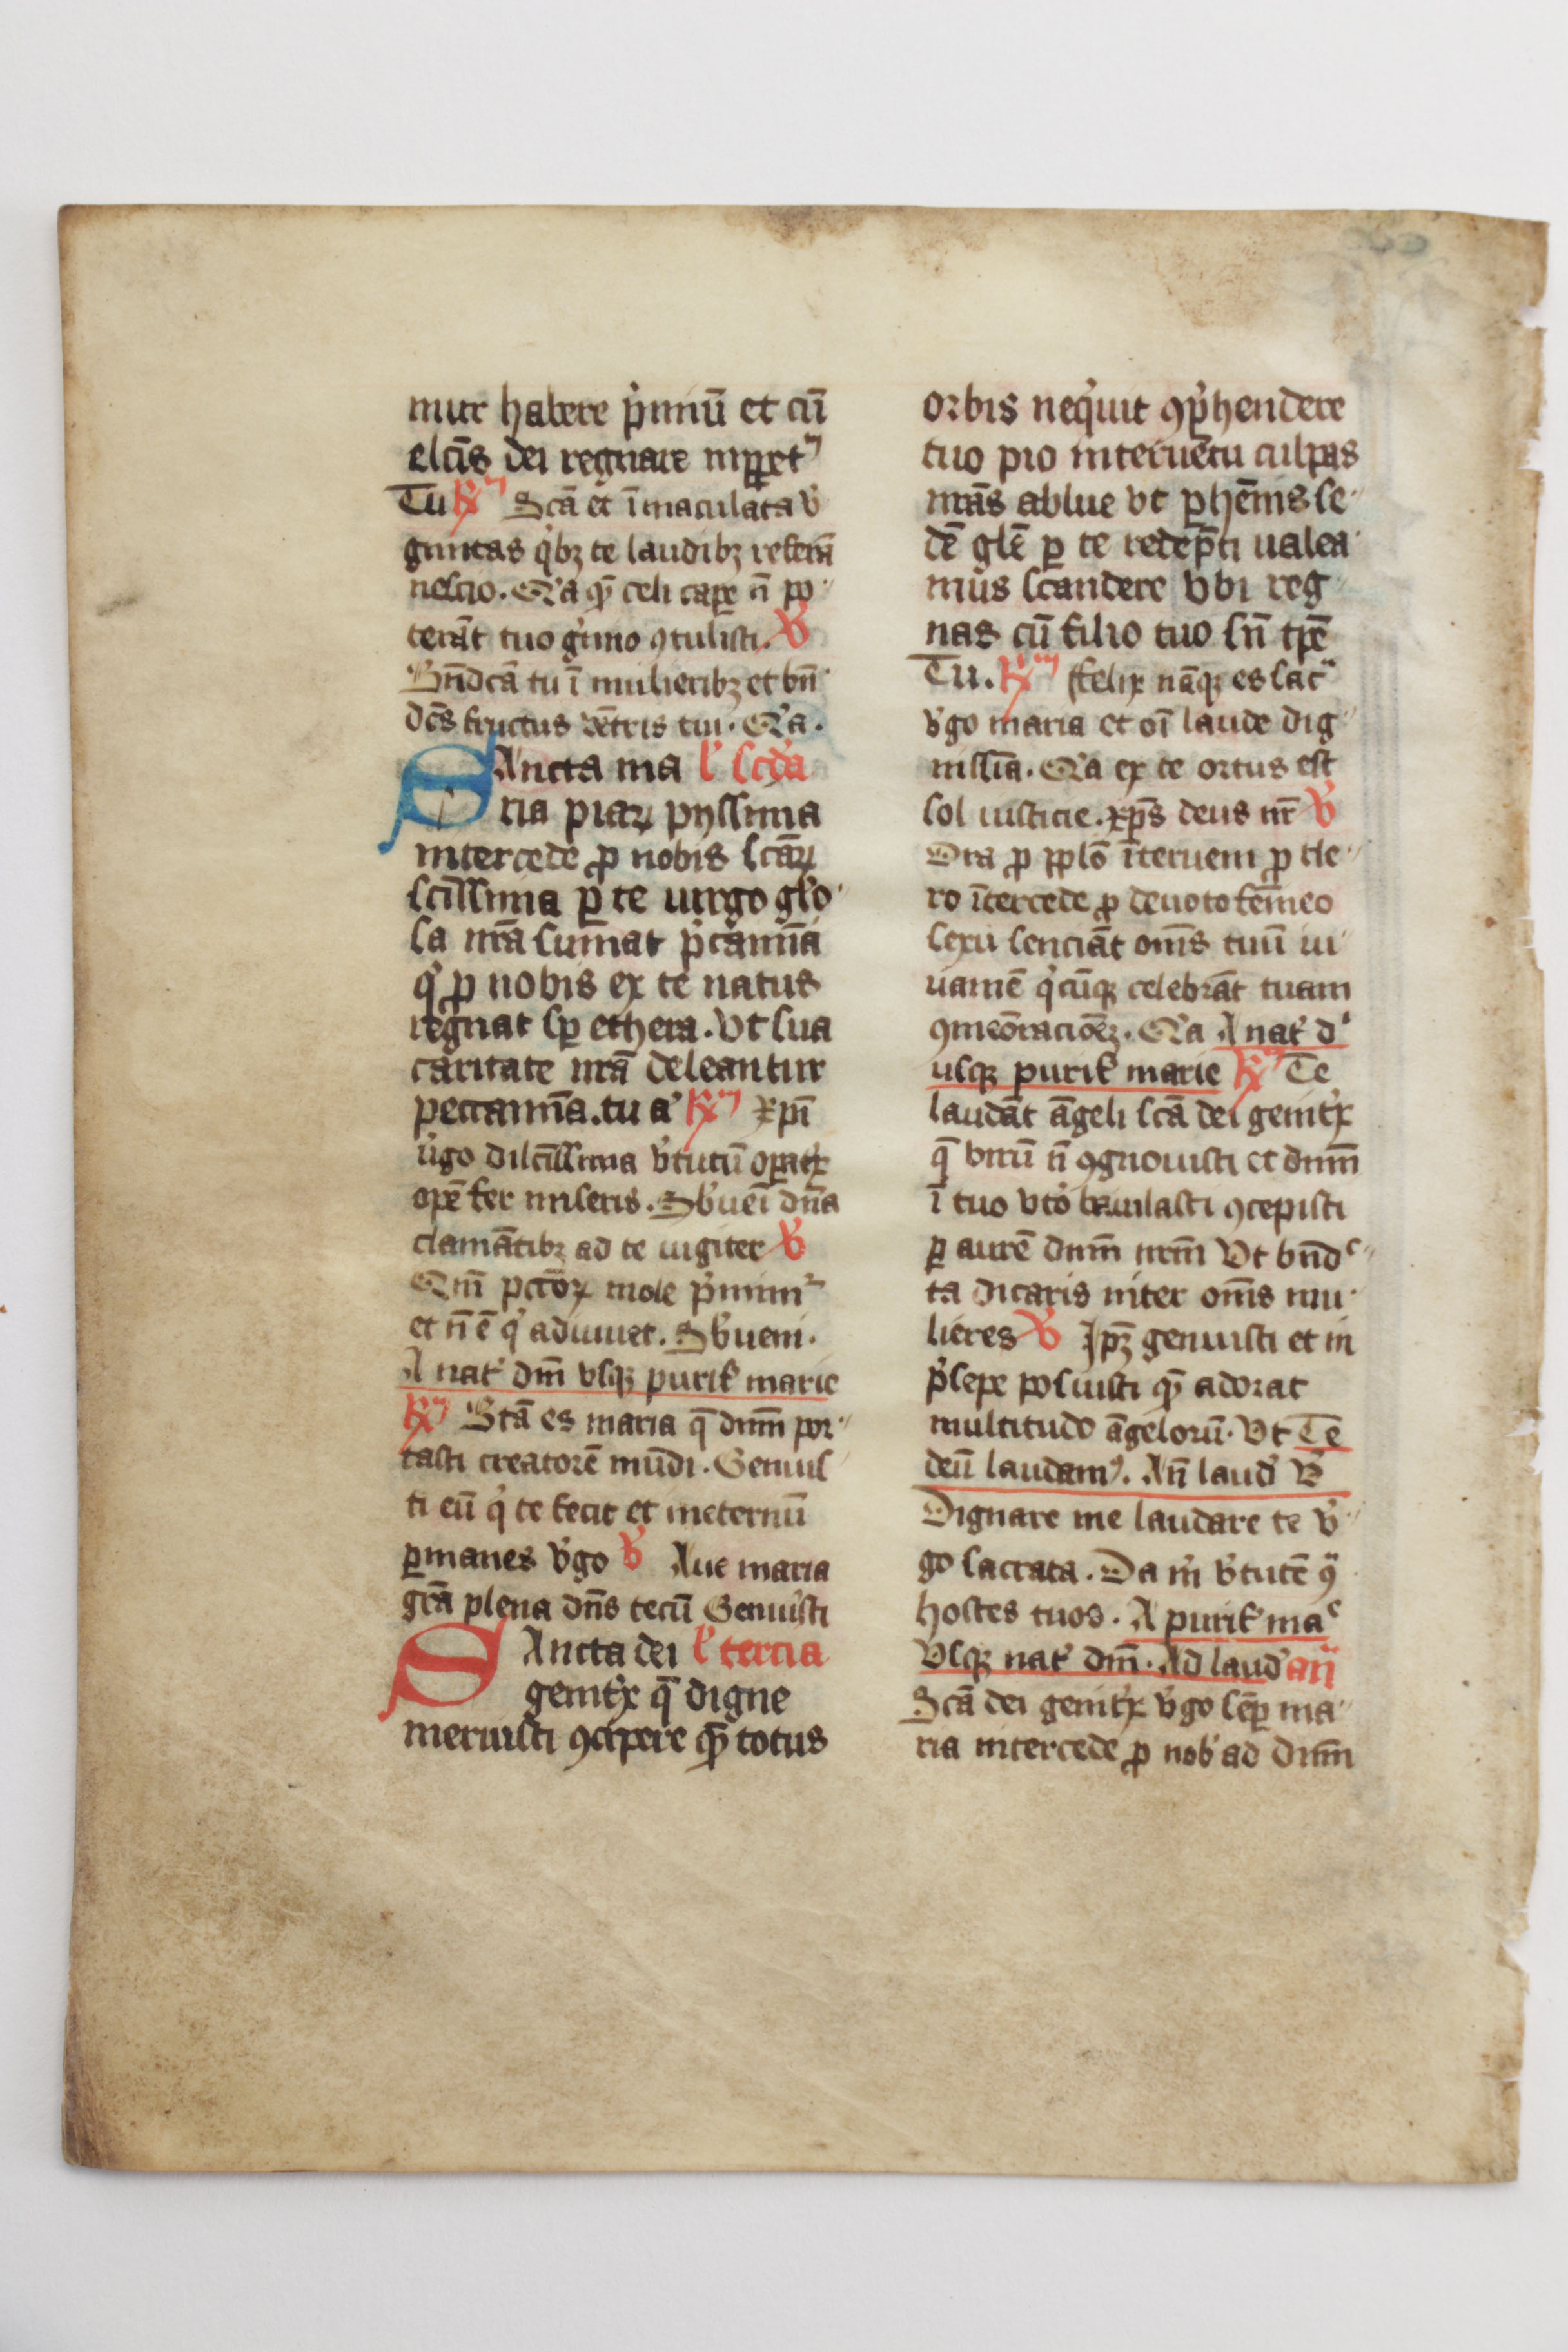 mur habere p̾miū et cū
elcīs dei regnare inꝑpetᷣ
Tu ℟ Scā et īmaculata v̾
ginitas qͥbꝫ te laudibꝫ referā
nescio. Qͥa qͣ celi caꝑe n̄ po
terāt tuo gͣmio ꝯtulisti. ℣
Bn̄dcā tu ī mulieribꝫ et bn̄
dcs̄ fructus vētris tui. Qͥa.
SAncta ma l' scd̾a
ria piaꝝ pyssima
intercede ꝓ nobis scāꝝ
scīssima ꝑ te uirgo gl'o
sa nrā sumat p̾camīa
qͥ ꝓ nobis ex te natus
regnat sꝑ ethera. Vt sua
caritate nrā deleantur
peccamīa. tu a' ℟ xp̄i
u̾go dilcīssima v̾tutū oꝑatͥx
opē fer miseris. Sb̾ueī dn̄a
clamātibꝫ ad te iugiter ℣
Qm̄ pctōꝝ mole p̾mimᷣ
et n̄ ē qͥ adiuuet. Sb̾ueni.
A nat' dm̄ vsqꝫ purif' marie
℟ Btā es maria q̄ dnm̄ por
tasti creatorē mūdi. Genuis
ti eū qͥ te fecit et ineternū
ꝑmanes v̾go ℣ Aue maria
grā plena dn̄s tecū Genuisti
SAncta dei l' tercia
genitͥx q̄ digne
meruisti ꝯcipere qͣ̄ totus
orbis neqͥuit ꝯp̾hendere
tuo pio interuētu culpas
nrās ablue vt ꝑhēnis se
dē glē ꝑ te redēpti ualea
mus scandere vbi reg
nas cū filio tuo sn̄ tꝑe
Tu. ℟ Felix nāqꝫ es sacᷓ
v̾go maria et oī laude dig
nissīa. Qͥa ex te ortus est
sol iusticie. xp̄s deus nr̄ ℣
Ora ꝓ pplō īterueni ꝓ cle
ro ītercede ꝓ deuoto femīeo
sexu senciāt oms̄ tuū iu
uamē qͥcūqꝫ celebrāt tuam
ꝯmeōracionē. Qͥa A nat' d'
usqꝫ purif' marie ℟ Te
laudāt āgeli scā dei genitͥx
q̄ virū n̄ ꝯgnouisti et dnm̄
ī tuo vto̾ baiulasti ꝯcepisti
ꝑ aurē dnm̄ nrm̄ Vt bn̄d
ta dicaris inter oms̄ mu
lieres ℣ Ip̄ꝫ genuisti et in
p̾sepe posuisti qͣ̄ adorat
multitudo āgelorū. Vt Te
deū laudamꝰ. An̄ laud' ℣
Dignare me laudare te v̾
go sacrata. Da m̄ v̾tutē ꝯᷓ
hostes tuos. A purif' maᶜ
Vsqꝫ nat' dm̄. Ad laud' an̄
Scā dei genitͥx v̾go sēꝑ ma
ria intercede ꝓ nob' ad dnm̄